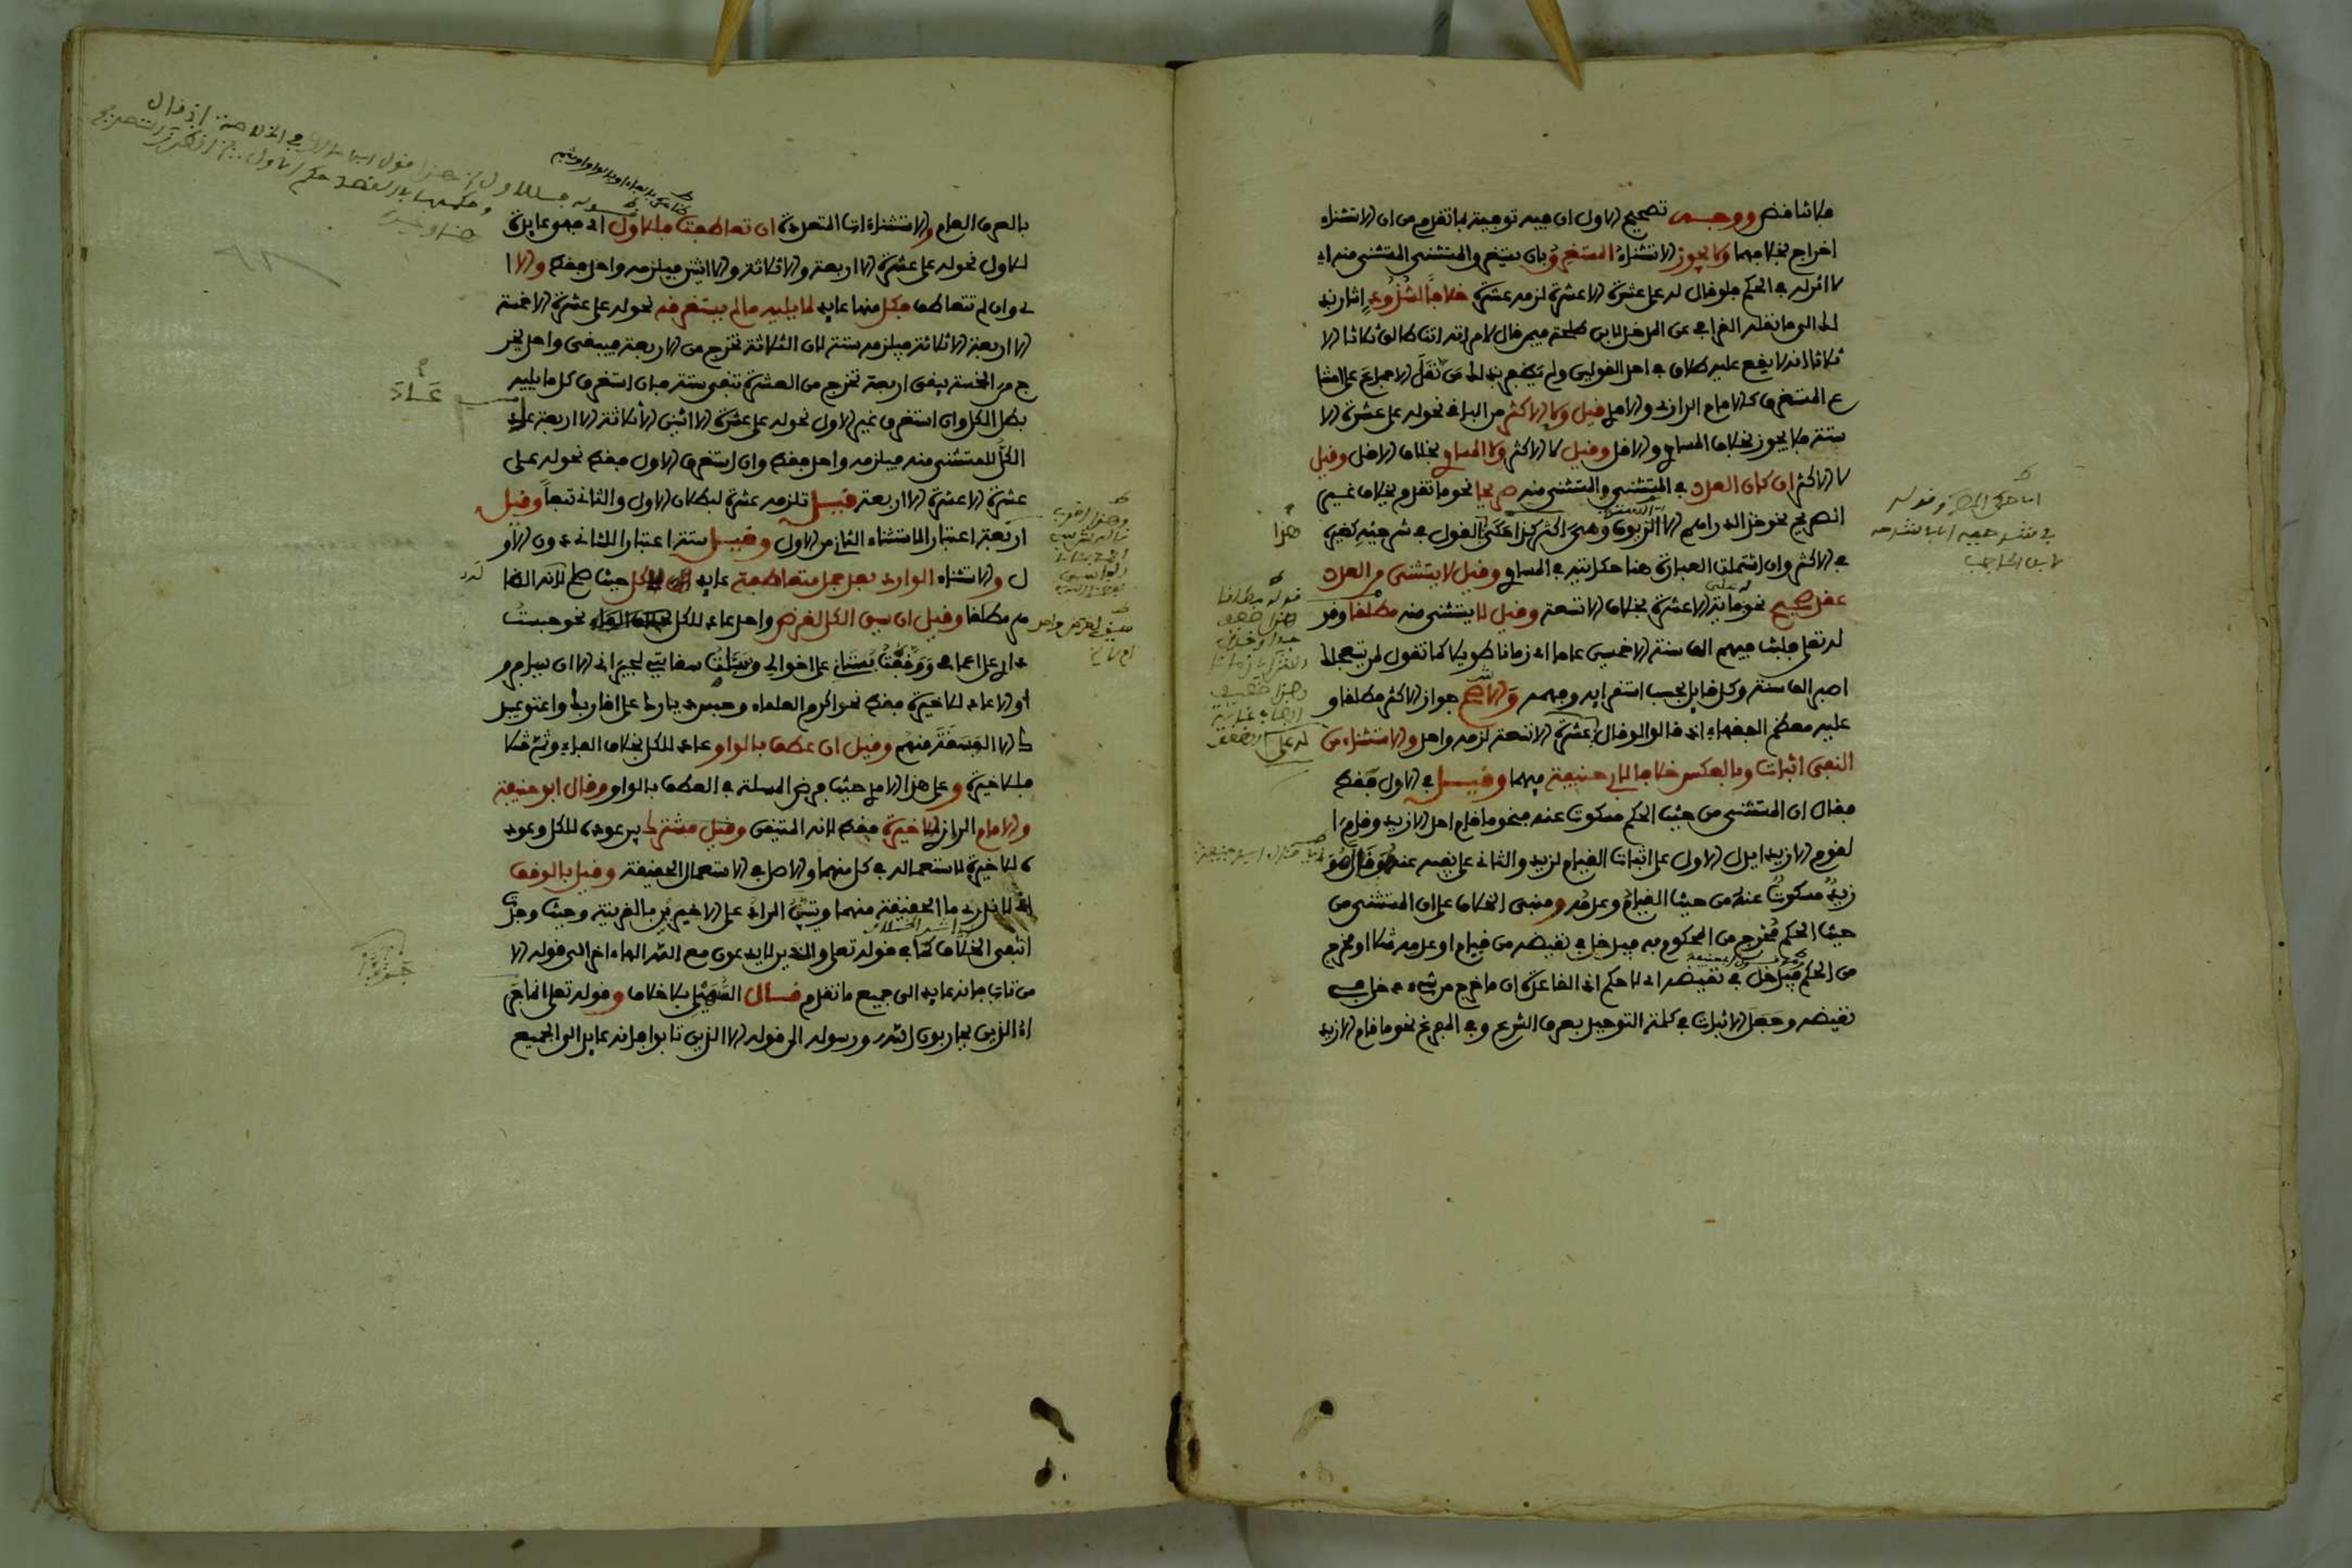 فلا تناقض ووجه تصحيح الاول ان فيه توفية بما تقدم من ان الاستثناء
اخراج بخلافهما ولا يجوز الاستثناء المستغرق بان يستغرق المستثنى المستثنى منه اي
لا اثر له في الحكم فلو قال له علي عشرة الا عشرة لزمه عشرة خلافا لشذوذ اشار بذ
لك الى ما نقله القرافي عن المدخل لابن طلحة فيمن قال لامراته انت طالق ثلاثا الا
ثلاثا انه لا يقع عليه طلاق في احد القولين ولم يظفر بذلك من نقل الاجماع على امتنا
ع المستغرق كالامام الرازي والامدي قيل ولا الاكثر من الباقي نحو له علي عشرة الا
ستة فلا يجوز بخلاف المساوي والاقل وقيل لا الاكثر ولا المساوي بخلاف الاقل وقيل
لا الاكثر ان كان العدد في المستثنى والمستثنى منه صريحا نحو ما تقدم بخلاف غير
الصريح نحو خذ الدراهم الا الزيوف وهي اكثر كذا حكى القول في شرحيه كغيره
في الاكثر وان اشتملت العبارة هنا حكايته في المساوي وقيل لا يستثنى من العدد
عقد صحيح نحو له علي مائة الا عشرة بخلاف الا تسعة وقيل لا يستثنى منه مطلقا وقو
له تعلى فلبث فيهم الف سنة الا خمسين عاما اي زمانا طويلا كما تقول لمن يستعجلك
اصبر الف سنة وكل قايل بحسب استقرايه وفهمه والاصح جواز الاكثر مطلقا و
عليه معظم الفقهاء اذ قالوا لو قال له علي عشرة الا تسعة لزمه واحد والاستثناء من
النفي اثبات وبالعكس خلافا لابي حنيفة فيهما وقيل في الاول فقط
فقال ان المستثنى من حيث الحكم مسكوت عنه فنحو ما قام احد الا زيد وقام ا
لقوم الا زيدا يدل الاول على اثبات القيام لزيد والثاني على نفيه عنه وقال هو
زيد مسكوت عنه من حيث القيام وعدمه ومبنى الخلاف على ان المستثنى من
حيث الحكم مخرج من المحكوم به فيدخل في نقيضه من قيام او عدمه مثلا او مخرج
من الحكم فيدخل في نقيضه اي لا حكم اذ القاعدة ان ما خرج من شيء دخل في
نقيضه وجعل الاثبات في كلمة التوحيد بعرف الشرع وفي المفرغ نحو ما قام الا زيد
هذا
بالعرف العام والاستثناءات المتعددة ان تعاطفت فللاول اي فهي عايدة
للاول نحو له علي عشرة الا اربعة والا ثلاثة والا اثنين فيلزمه واحد فقط والا ا
ي وان لم تتعاطف فكل منها عايد لما يليه ما لم يستغرقه نحو له علي عشرة الا خمسة
الا اربعة الا ثلاثة فيلزمه ستة لان الثلاثة تخرج من الاربعة فيبقى واحد يخر
ج من الخمسة يبقى اربعة تخرج من العشرة تبقى ستة فان استغرق كل ما يليه
بطل الكل وان استغرق غير الاول نحو له علي عشرة الا اثنين الا ثلاثة الا اربعة عاد
الكل للمستثنى منه فيلزمه واحد فقط وان استغرق الاول فقط نحو له علي
عشرة الا عشرة الا اربعة قيل تلزمه عشرة لبطلان الاول والثاني تبعا وقيل
اربعة اعتبارا لاستثناء الثاني من الاول وقيل ستة اعتبارا للثاني دون الاو
ل والاستثناء الوارد بعد جمل متعاطفة عايد للكل حيث صلح لانه الظا
هر مطلقا وقيل ان سيق الكل لغرض واحد عاد للكل نحو حبست
داري على اعمامي ووقفت بستاني على اخوالي وسبلت سقايتي لجيراني الا ان يسافرو
ا والا عاد للاخيرة فقط نحو اكرم العلماء وحبس ديارك على اقاربك واعتق عبيد
ك الا الفسقة منهم وقيل ان عطف بالواو عاد للكل بخلاف الفاء وثم مثلا
فللاخيرة وعلى هذا الامدي حيث فرض المسئلة في العطف بالواو وقال ابو حنيفة
والامام الرازي للاخيرة فقط لانه المتيقن وقيل مشترك بين عوده للكل وعود
ه للاخيرة لاستعماله في كل منهما والاصل في الاستعمال الحقيقة وقيل بالوقف
اي لا ندري ما الحقيقة منهما ويتبين المراد على الاخيرين بالقرينة وحيث وجدت
انتفى الخلاف كما في قوله تعلى والذين لا يدعون مع الله الها ءاخر الى قوله الا
من تاب فانه عايد الى جميع ما تقدم قال السهيلي بلا خلاف وقوله تعلى انما جز
اؤا الذين يحاربون الله ورسوله الى قوله الا الذين تابوا فانه عايد الى الجميع